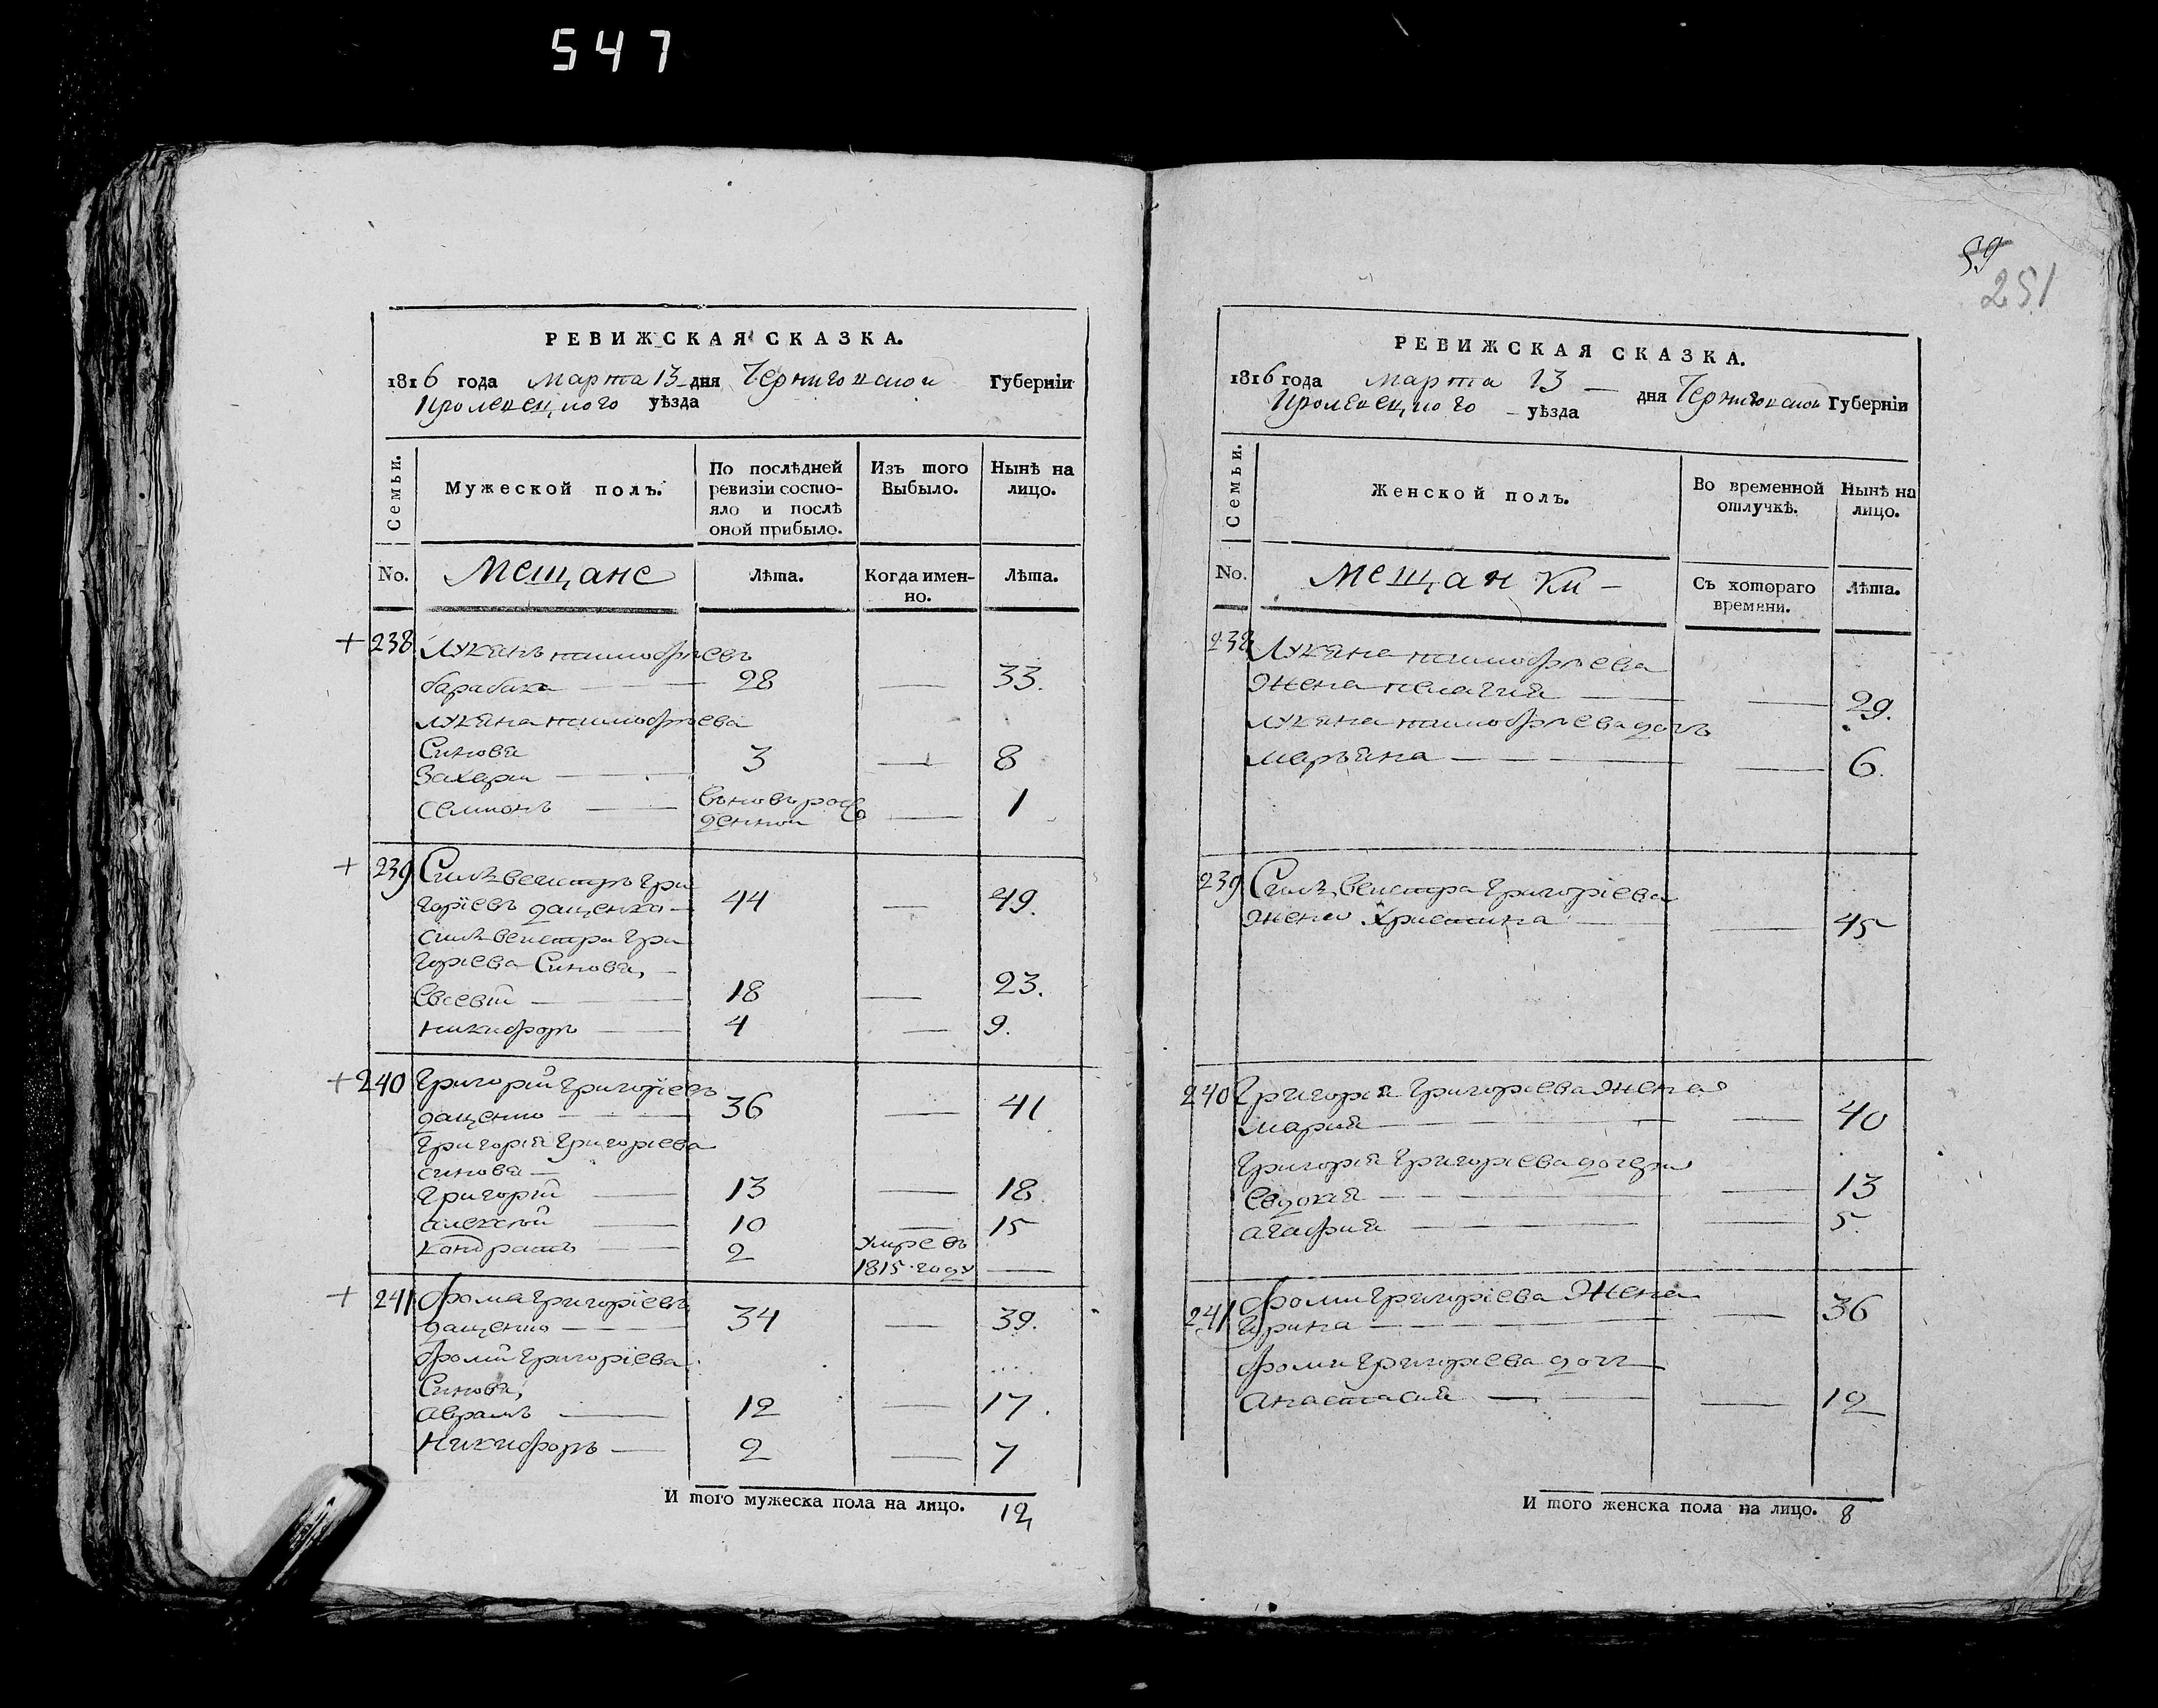 547
59
251
РЕВИЖСКАЯ СКАЗКА.
1816 года Марта 13 дня Черниговской Губерніи
Кролевецкого уѣзда
Семьи.
Мужеской полъ.
По послѣдней ревизіи состо-
яло и послѣ
оной прибыло.
Изъ того
Выбыло.
Нынѣ на
лицо.
No.
Мещане
Лѣта.
Когда имен-
но.
Лѣта.
+ 238 Лукянъ тимофѣевъ
барабаха — 28 — 33.
лукяна тимофѣева
Синовя
Захари — 3 — 8
семионъ — вновь рож
денной — 1
+ 239 Силвенстръ Гри
горіевъ дащенко — 44 — 49.
силвенстра Гри
горіева Синовя,
Евсевій — 18 — 23.
никифоръ — 4 — 9.
+ 240 Григорій Григоріевъ
дащенко — 36 — 41
Григорія Григоріева
синовя —
Григорій — 13 — 18.
алексѣй — 10 — 15
кондратъ — 2 умре въ
1815 году —
+ 241 Фома Григоріевъ
дащенко — 34 — 39.
Фоми Григоріева
Синовя,
аврамъ — 12 — 17.
Никифоръ — 2 — 7
И того мужеска пола на лицо. 12
РЕВИЖСКАЯ СКАЗКА.
1816 года Марта 13 — дня Черниговской Губерніи
Кролевецкого уѣзда
Семьи.
Женской полъ.
Во временной
отлучкѣ.
Нынѣ на
лицо.
No.
Мещанки —
Съ котораго
времяни.
Лѣта.
238 Лукяна тимофѣева
Жена пелагия — — 29.
лукяна тимофѣева дочъ
маръяна — — 6.
239 Силвенстра Григоріева
жена Христина — — 45
240 Григорія Григоріева жена
мария — — 40
Григорія Григоріева дочери
Евдокия — — 13
агафия — — 5.
241 Фоми Григоріева Жена
Ирина — — 36
Фоми Григоріева дочь
анастасия — — 12
И того женска пола на лицо. 8